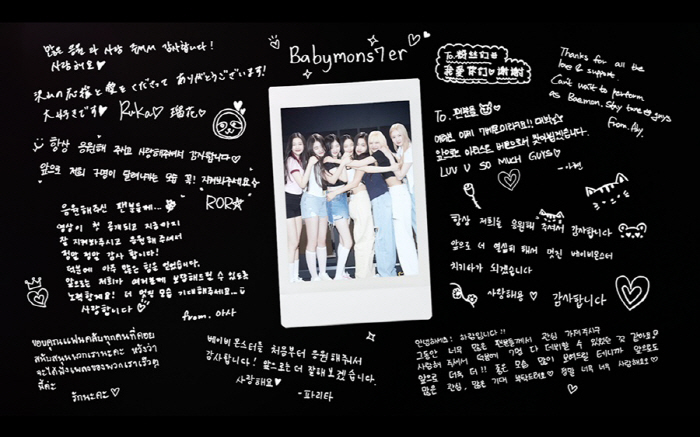 많은 응원과 사랑 감사합니다!
사랑해요♡
沢山の応援と愛をくださって ありがとうございます!
大好きです♡ Ruka♡ 瑠花♡
항상 응원해 주시고 사랑해주셔서 감사합니다♡
앞으로 저희 7명이 달려나가는 모습 꼭! 지켜봐주세요
RORA
응원해주신 팬분들께...
영상이 첫 공개되고 지금까지
잘 지켜봐주시고 응원해 주셔서
정말 정말 감사 합니다!
덕분에 아주 많은 힘을 얻었습니다.
앞으로는 저희가 여러분께 보답해드릴 수 있도록
노력할게요! 더 멋진 모습 기대해주세요
사랑합니다♡
from. 아사
ขอบคุณแฟนคลับทุกคนที่คอย
สนับสนุนพวกเรานะคะ หวังว่า
นะคะ
รักนะคะ♡
Babymons7er
베이비몬스터를 처음부터 응원해줘서
감사합니다! 앞으로는 더 잘해보겠습니다.
사랑해요♡
-파리타
To. 粉丝们
我爱你们♡ 谢谢
Thanks for all the
love & support.
Can't wait to perform
as Baemon. Stay tune guys
from.
To. 팬분들
LUV U SO MUCH GUYS♡
-아현
항상 저희를 응원해 주셔서 감사합니다
앞으로 더 열심히 해서 멋진 베이비몬스터
치키타가 되겠습니다
사랑해용♡ 감사합니다
안녕하세요! 하람입니다!!
그동안 너무 많은 팬분들께서 관심 가져주시구
사랑해 주셔서 덕분에 7명 다 데뷔할 수 있었던 것 같아요?
앞으로 더욱 더!! 좋은 모습 많이 보여드릴 테니까 앞으로도
많은 관심, 많은 기대 부탁드려요♡ 정말 너무 너무 사랑해요♡